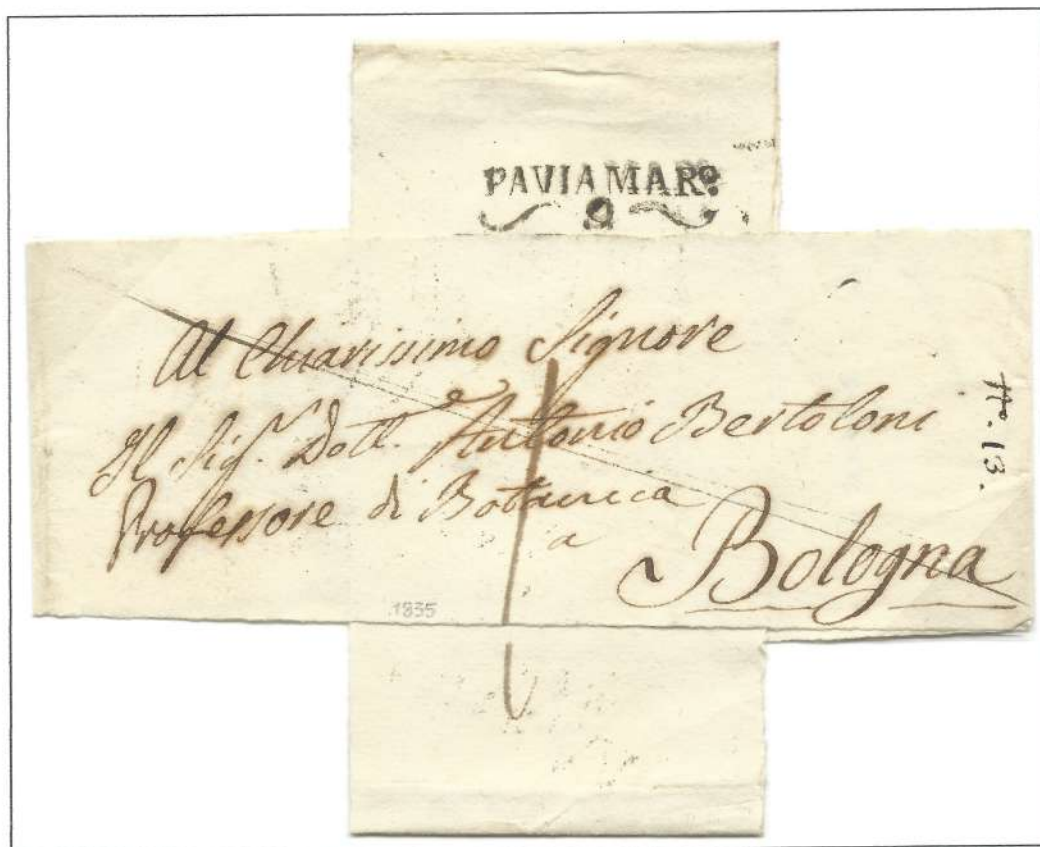 PAVIA MARº.
2
Al Chiarissimo Signore
Il Sigr. Dott. Antonio Bertoloni
Professore di Botanica
a
Bologna
1835
Nº. 13.